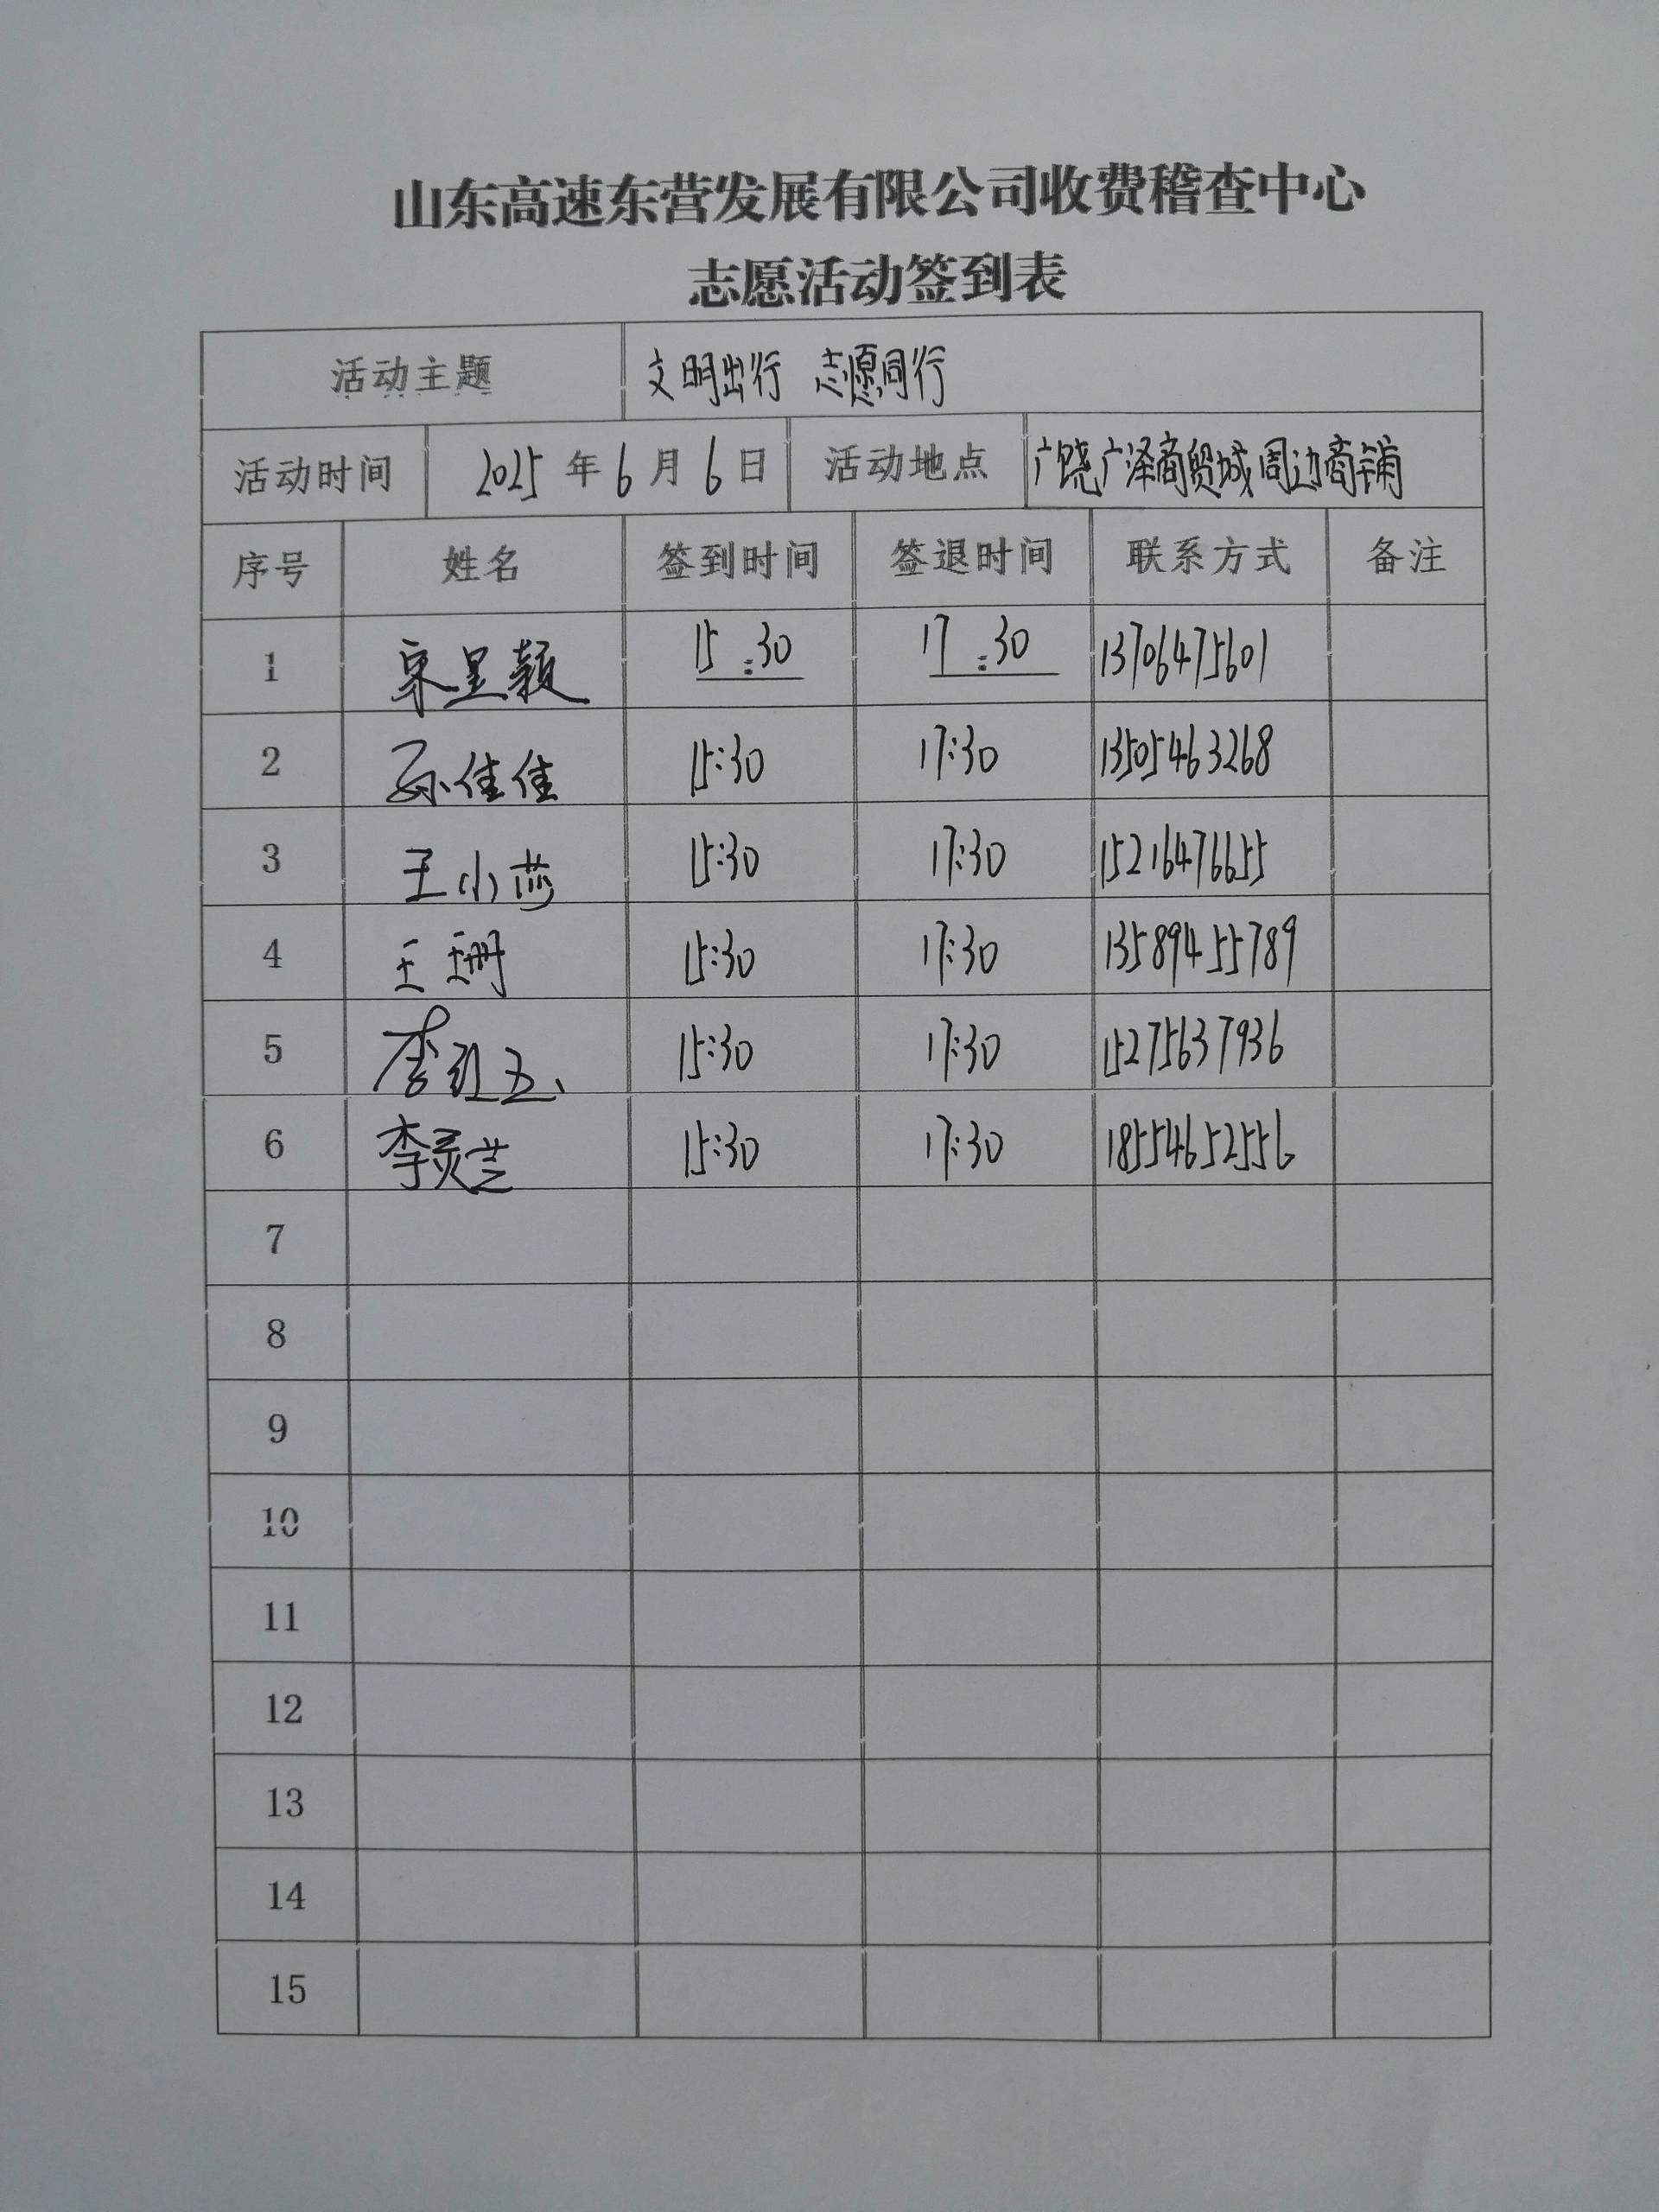 山东高速东营发展有限公司收费稽查中心
志愿活动签到表
活动主题 文明出行 志愿同行
活动时间 2025年6月6日 活动地点 广饶广泽商贸城周边商铺
序号 姓名 签到时间 签退时间 联系方式 备注
1 15:30 17:30 13706475601
2 孙佳佳 15:30 17:30 13505463268
3 王小燕 15:30 17:30 15216476655
4 王珊 15:30 17:30 13589455789
5 李红玉 15:30 17:30 15275637936
6 李灵芝 15:30 17:30 18554652556
7
8
9
10
11
12
13
14
15